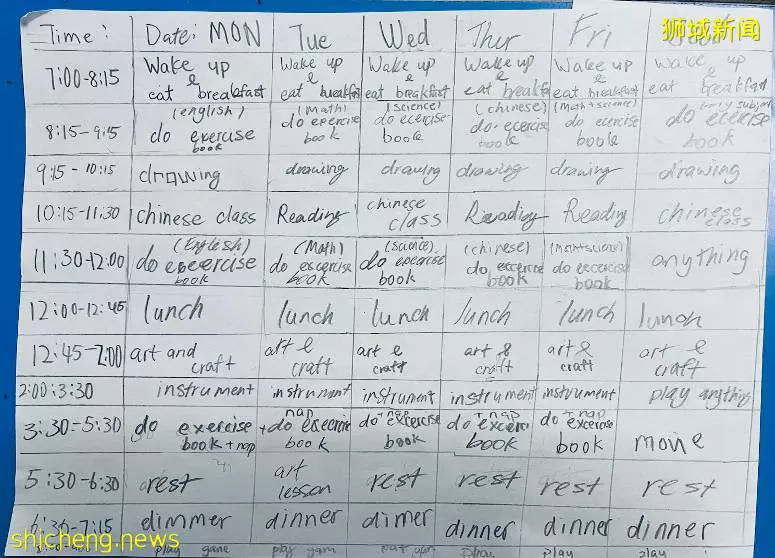 狮城新闻
Time: Date: MON Tue Wed Thur Fri
7:00-8:15 Wake up & eat breakfast Wake up & eat breakfast Wake up & eat breakfast Wake up & eat breakfast Wake up & eat breakfast Wake up & eat breakfast
8:15-9:15 (english) do exercise book (Math) do exercise book (science) do ecercise book (chinese) do ecercise book (Math+science) do ecercise book do ecercise book
9:15-10:15 drawing drawing drawing drawing drawing drawing
10:15-11:30 chinese class Reading chinese class Reading Reading chinese class
11:30-12:00 (English) do excercise book (Math) do excercise book (science) do exercise book (chinese) do excercise book (Mathscience) do excercise book anything
12:00-12:45 lunch lunch lunch lunch lunch lunch
12:45-2:00 art and craft art & craft art & craft art & craft art & craft art & craft
2:00:3:30 instrument instrument instrument instrument instrument play anything
3:30-5:30 do exercise book + nap + nap do excercise book + nap do excercise book + nap do excerci book + nap do exercise book movie
5:30-6:30 rest art lesson rest rest rest rest
6:30-7:15 dimmer dinner dimer dinner dinner dinner
play game play play play play
shicheng.news